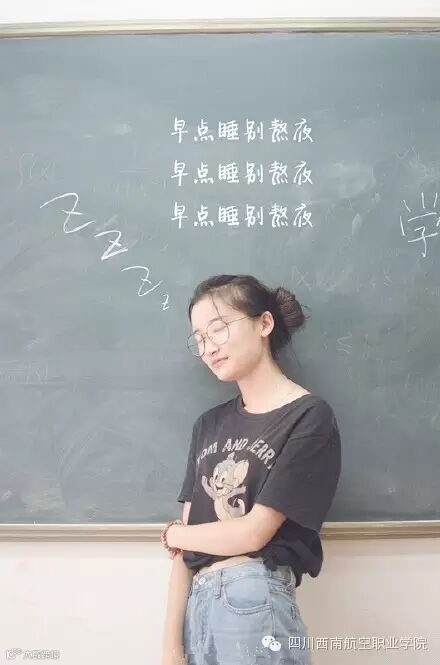 早点睡别熬夜
早点睡别熬夜
早点睡别熬夜
学
Z
Z
Z
z
TOM AND JERRY
四川西南航空职业学院